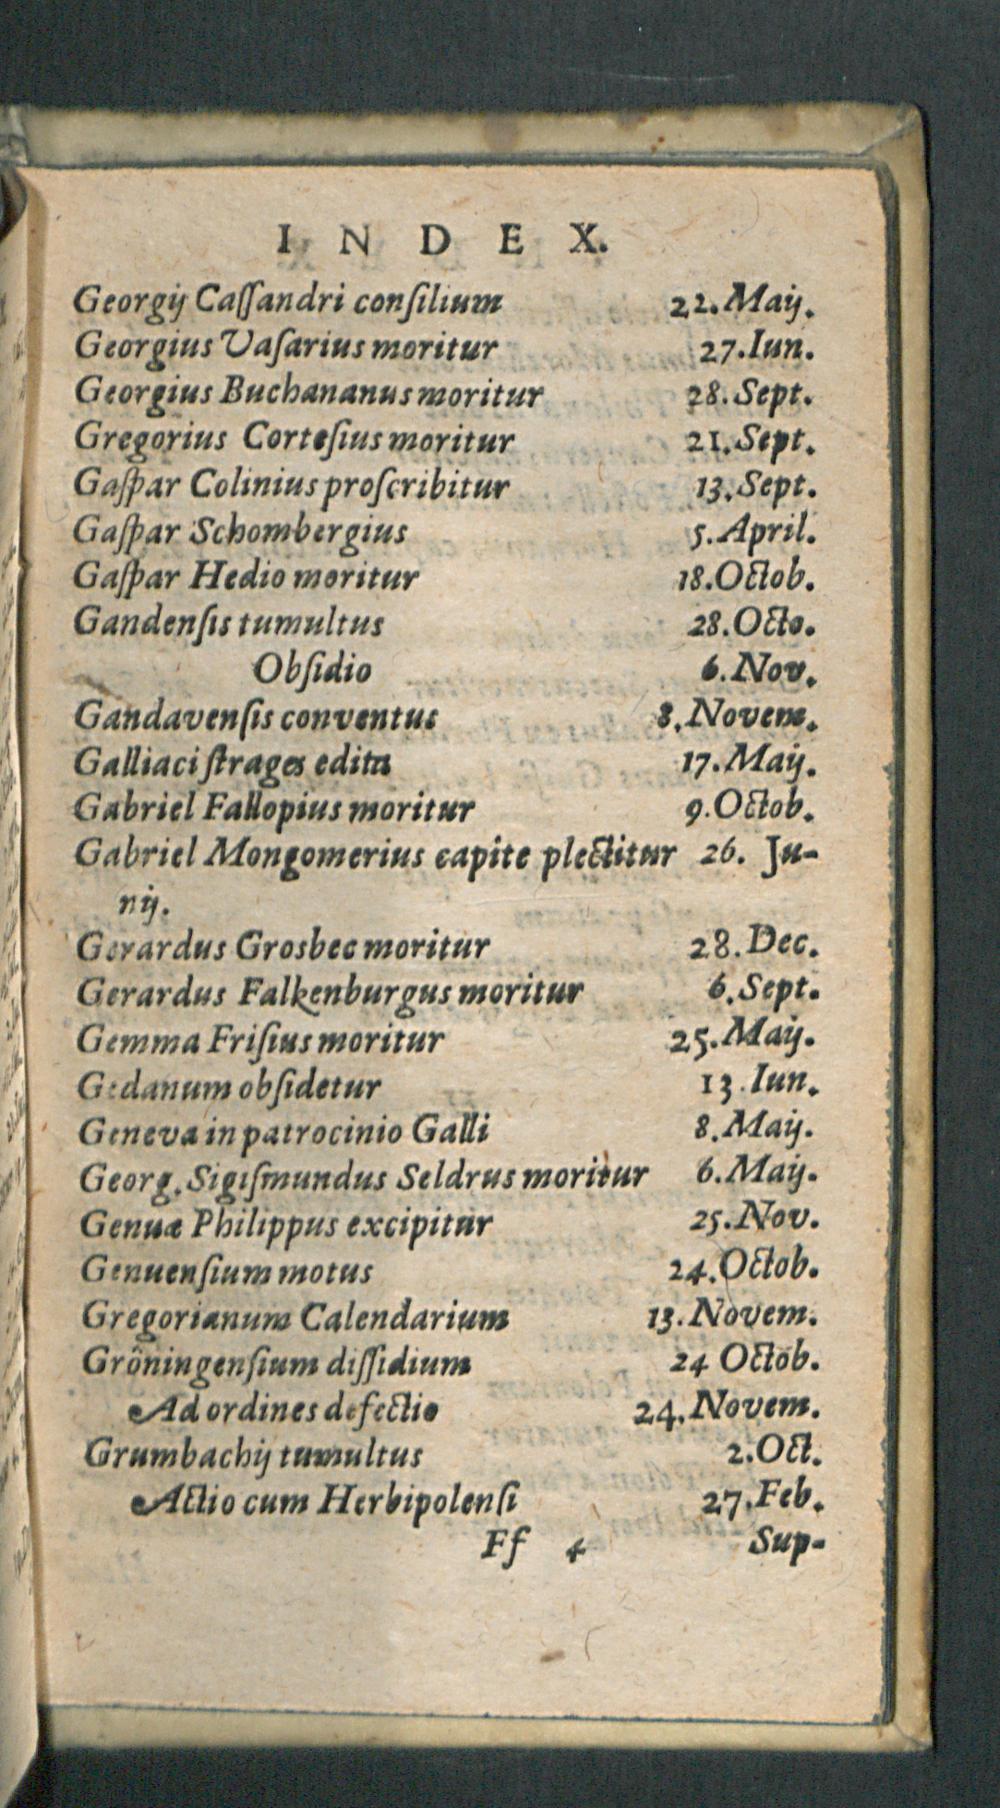 I N D E X.
Georgij Caſſandri conſilium 22. Maij.
Georgius Vaſarius moritur 27. Iun.
Georgius Buchananus moritur 28. Sept.
Gregorius Corteſius moritur 21. Sept.
Gaſpar Colinius proſcribitur 13. Sept.
Gaſpar Schombergius 5. April.
Gaſpar Hedio moritur 18. Octob.
Gandenſis tumultus 28. Octo.
Obſidio 6. Nov.
Gandavenſis conventus 8. Novem.
Galliaci ſtrages edita 17. Maij.
Gabriel Fallopius moritur 9. Octob.
Gabriel Mongomerius capite plectitur 26. Ju-
nij.
Gerardus Grosbec moritur 28. Dec.
Gerardus Falkenburgus moritur 6. Sept.
Gemma Friſius moritur 25. Maij.
Gedanum obſidetur 13. Iun.
Geneva in patrocinio Galli 8. Maij.
Georg. Sigiſmundus Seldrus moritur 6. Maij.
Genuæ Philippus excipitur 25. Nov.
Genuenſium motus 24. Octob.
Gregorianum Calendarium 13. Novem.
Gröningenſium diſſidium 24 Octob.
Ad ordines defectio 24. Novem.
Grumbachij tumultus 2. Oct.
Actio cum Herbipolenſi 27. Feb.
Ff 4 Sup-